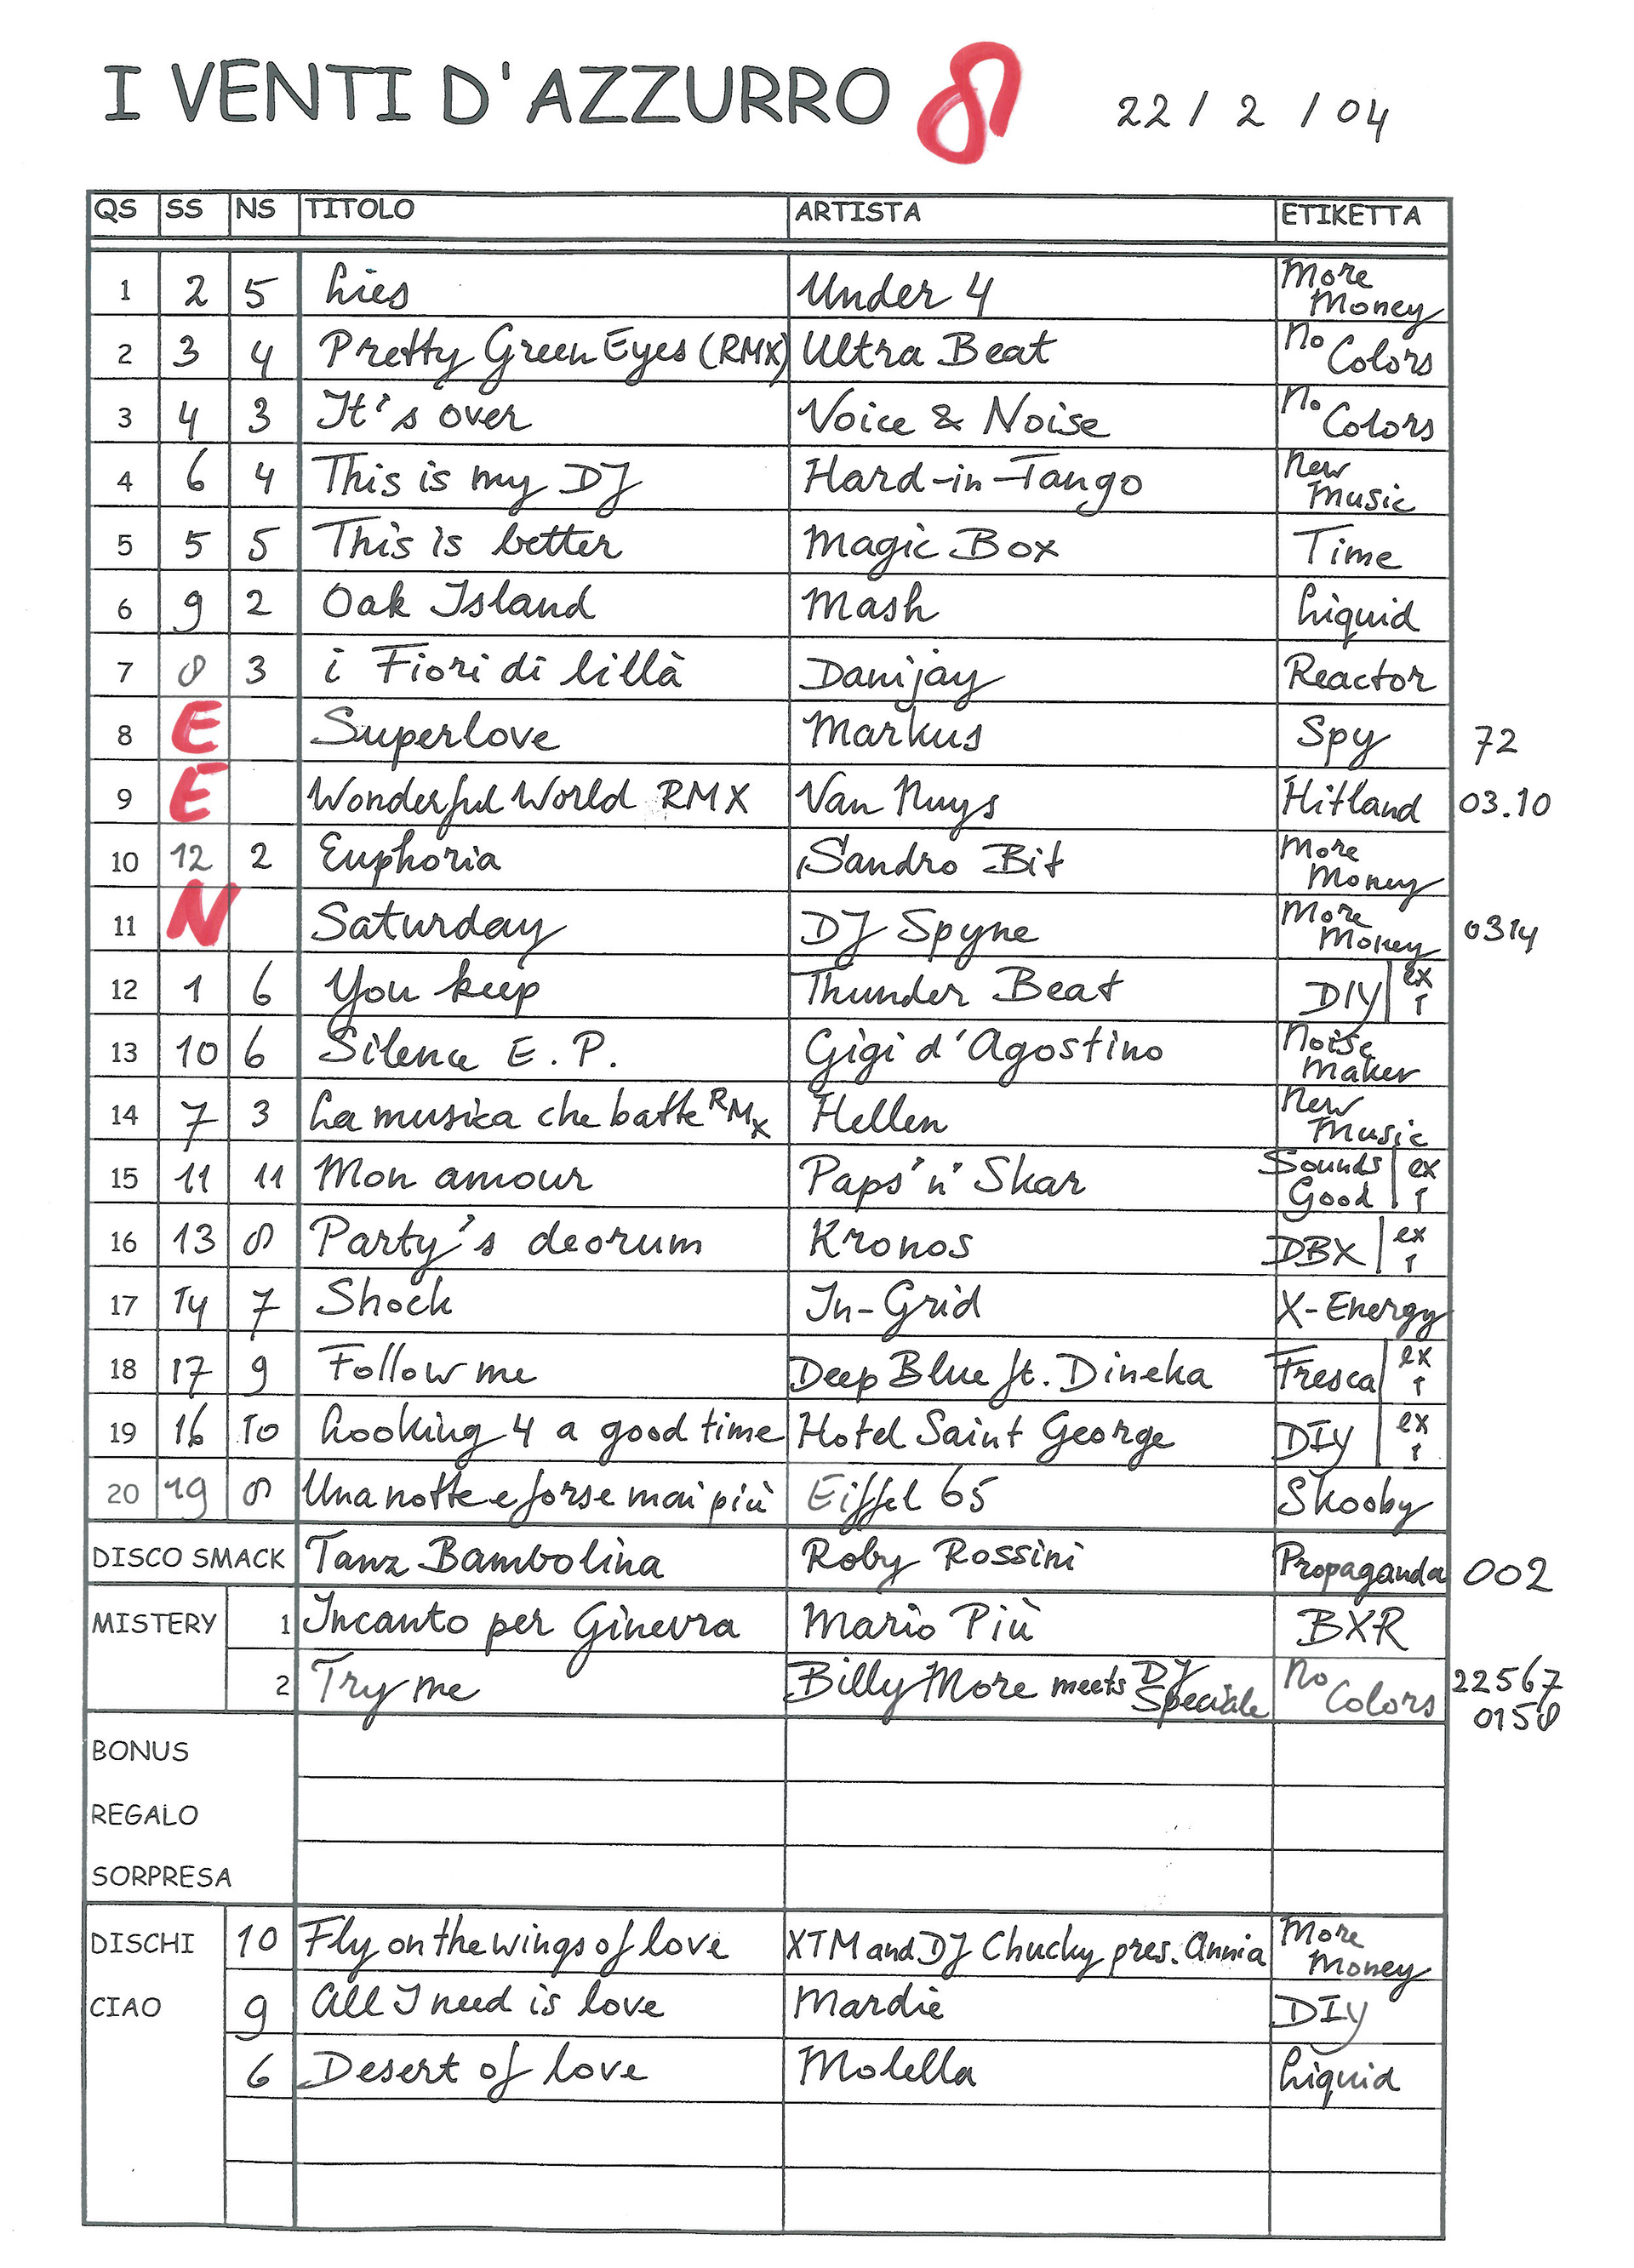 I VENTI D'AZZURRO 8 22/2/04
QS SS NS TITOLO ARTISTA ETIKETTA
1 2 5 Lies Under 4 More Money
2 3 4 Pretty Green Eyes (RMX) Ultra Beat No Colors
3 4 3 It's over Voice & Noise No Colors
4 6 4 This is my DJ Hard-in-Tango New Music
5 5 5 This is better Magic Box Time
6 9 2 Oak Island Mash Liquid
7 8 3 i Fiori di lillà Danijay Reactor
8 E Superlove Markus Spy 72
9 E Wonderful World RMX Van Nuys Hitland 03.10
10 12 2 Euphoria Sandro Bit More Money
11 N Saturday DJ Spyne More Money 0314
12 1 6 You keep Thunder Beat DIY ex 1
13 10 6 Silence E.P. Gigi d'Agostino Noise Maker
14 7 3 La musica che batte RMX Hellen New Music
15 11 11 Mon amour Paps'n'Skar Sounds Good ex 1
16 13 8 Party's deorum Kronos DBX ex 1
17 14 7 Shock In-Grid X-Energy
18 17 9 Follow me Deep Blue ft. Dineka Fresca ex 1
19 16 10 Looking 4 a good time Hotel Saint George DIY ex 1
20 19 8 Una notte e forse mai più Eiffel 65 Skooby
DISCO SMACK Tanz Bambolina Roby Rossini Propaganda 002
MISTERY 1 Incanto per Ginevra Mario Più BXR
2 Try me Billy More meets DJ Speciale No Colors 22567 0158
BONUS
REGALO
SORPRESA
DISCHI 10 Fly on the wings of love XTM and DJ Chucky pres. Annia More Money
CIAO 9 All I need is love Mardie DIY
6 Desert of love Molella Liquid